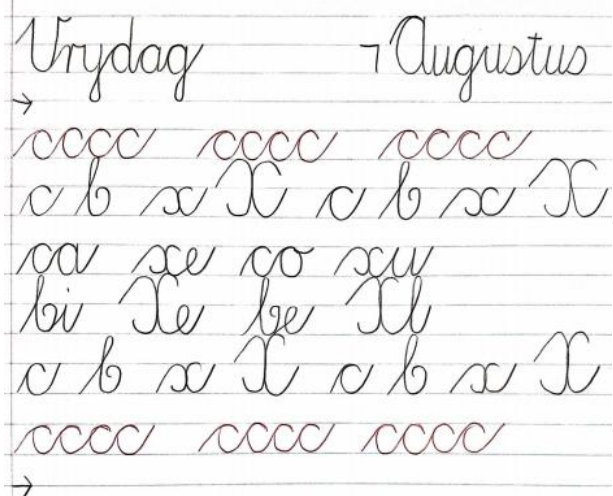 Vrydag 7 Augustus
cccc cccc cccc
c b x X c b x X
ca xe co xu
bi Xe be Xb
c b x X c b x X
cccc cccc cccc